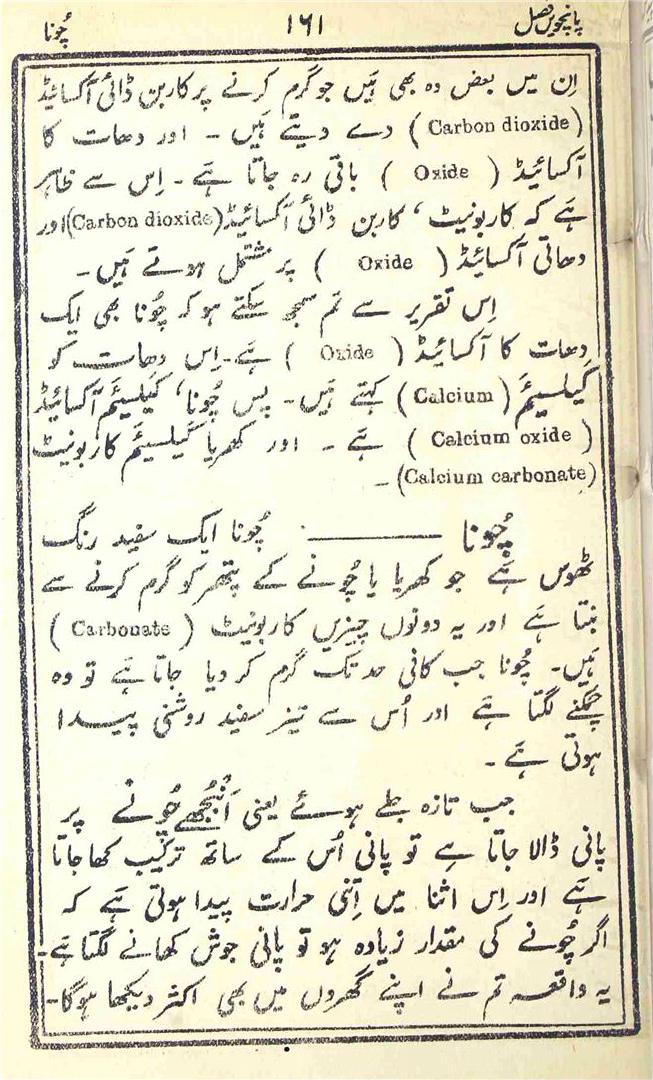 پانچویں فصل ۱۶۱ چُونا
اِن میں بعض وہ بھی ہَیں جو گرم کرنے پر کاربن ڈائی آکسائیڈ
(Carbon dioxide) دے دیتے ہَیں ۔ اور دھات کا
آکسائیڈ (Oxide) باقی رہ جاتا ہَے ۔ اِس سے ظاہر
ہَے کہ کاربونیٹ، کاربن ڈائی آکسائیڈ (Carbon dioxide) اور
دھاتی آکسائیڈ (Oxide) پر مشتمل ہوتے ہَیں ۔
اِس تقریر سے تم سمجھ سکتے ہو کہ چُونا بھی ایک
دھات کا آکسائیڈ (Oxide) ہَے ۔ اِس دھات کو
کَیلسیئم (Calcium) کہتے ہَیں ۔ پس چُونا، کَیلسیئم آکسائیڈ
(Calcium oxide) ہَے ۔ اور کھریا کَیلسیئم کاربونیٹ
(Calcium carbonate) ۔
چُونا ——— چُونا ایک سفید رنگ
ٹھوس ہَے جو کھریا یا چُونے کے پتھر کو گرم کرنے سے
بنتا ہَے اور یہ دونوں چیزیں کاربونیٹ (Carbonate)
ہَیں ۔ چُونا جب کافی حد تک گرم کر دیا جاتا ہَے تو وہ
چمکنے لگتا ہَے اور اُس سے تیز سفید روشنی پیدا
ہوتی ہَے ۔
جب تازہ جلے ہوئے یعنی اَنْبُجھے چُونے پر
پانی ڈالا جاتا ہے تو پانی اُس کے ساتھ ترکیب کھا جاتا
ہَے اور اِس اثنا میں اِتنی حرارت پیدا ہوتی ہَے کہ
اگر چُونے کی مقدار زیادہ ہو تو پانی جوش کھانے لگتا ہَے ۔
یہ واقعہ تم نے اپنے گھروں میں بھی اکثر دیکھا ہوگا ۔